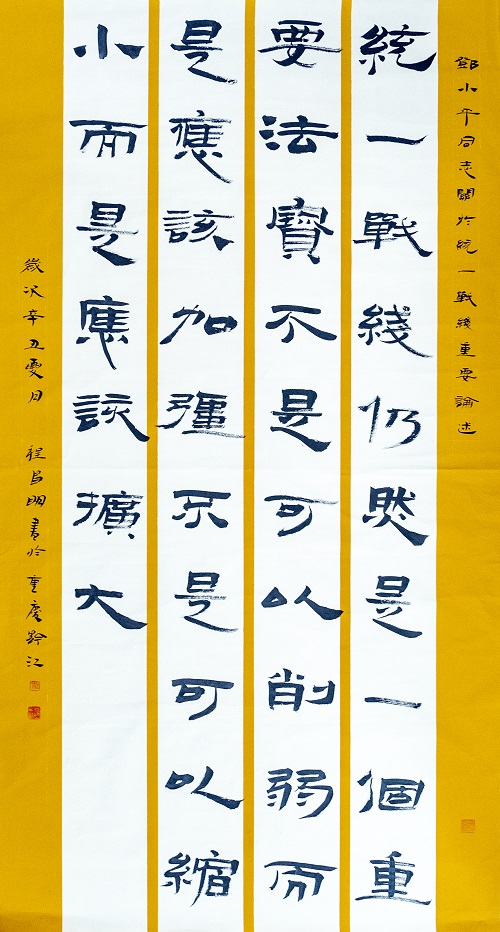 鄧小平同志關於統一戰綫重要論述
統一戰綫仍然是一個重
要法寶不是可以削弱而
是應該加彊不是可以縮
小而是應該擴大
歲次辛丑夏月 程昌明書於重慶黔江